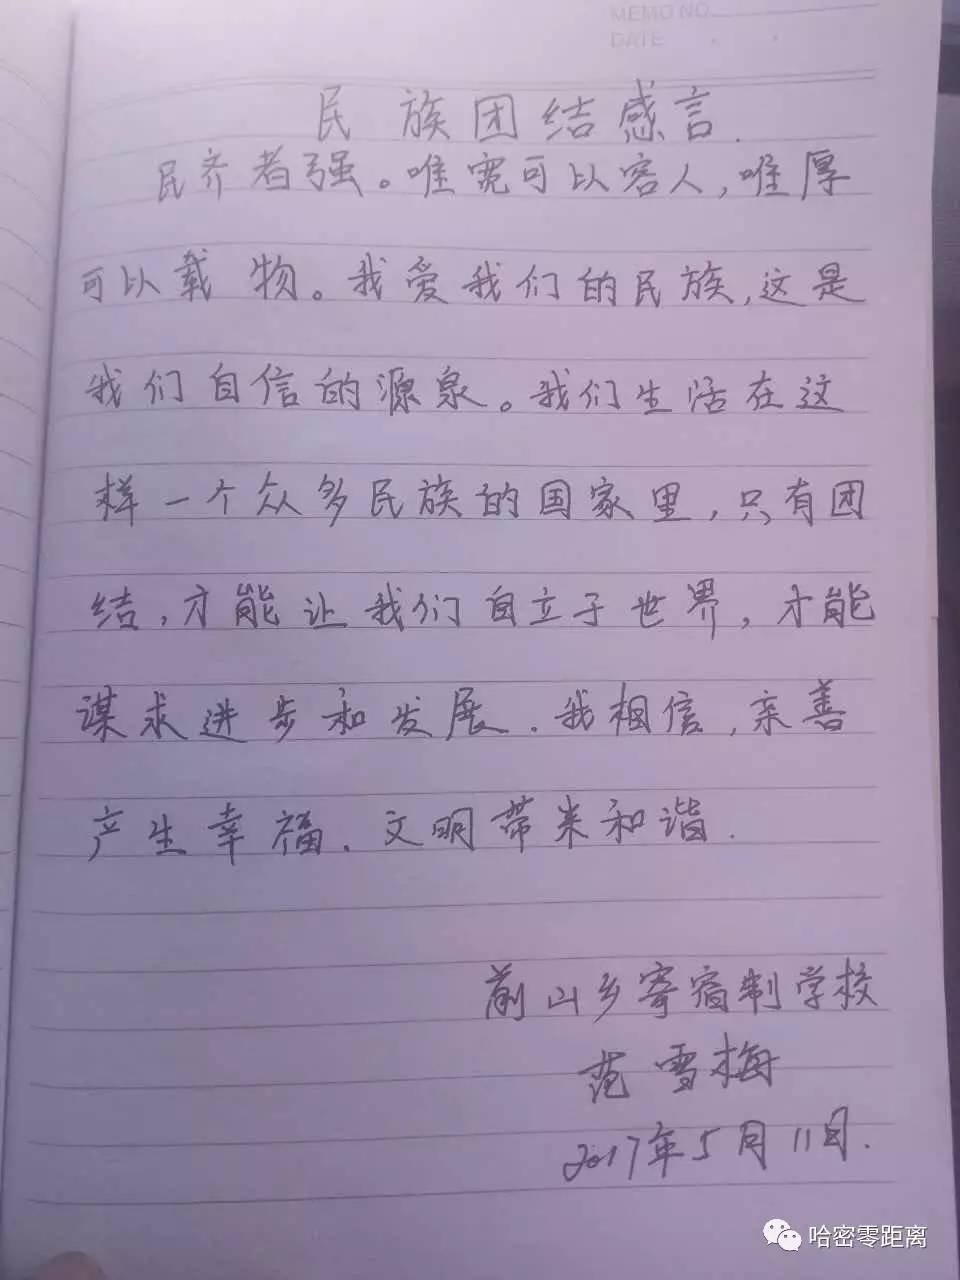 MEMO NO.
DATE
民族团结感言.
民齐者强。唯宽可以容人,唯厚
可以载物。我爱我们的民族,这是
我们自信的源泉。我们生活在这
样一个众多民族的国家里,只有团
结,才能让我们自立于世界,才能
谋求进步和发展.我相信,亲善
产生幸福.文明带来和谐.
前山乡寄宿制学校
范雪梅
2017年5月11日.
哈密零距离